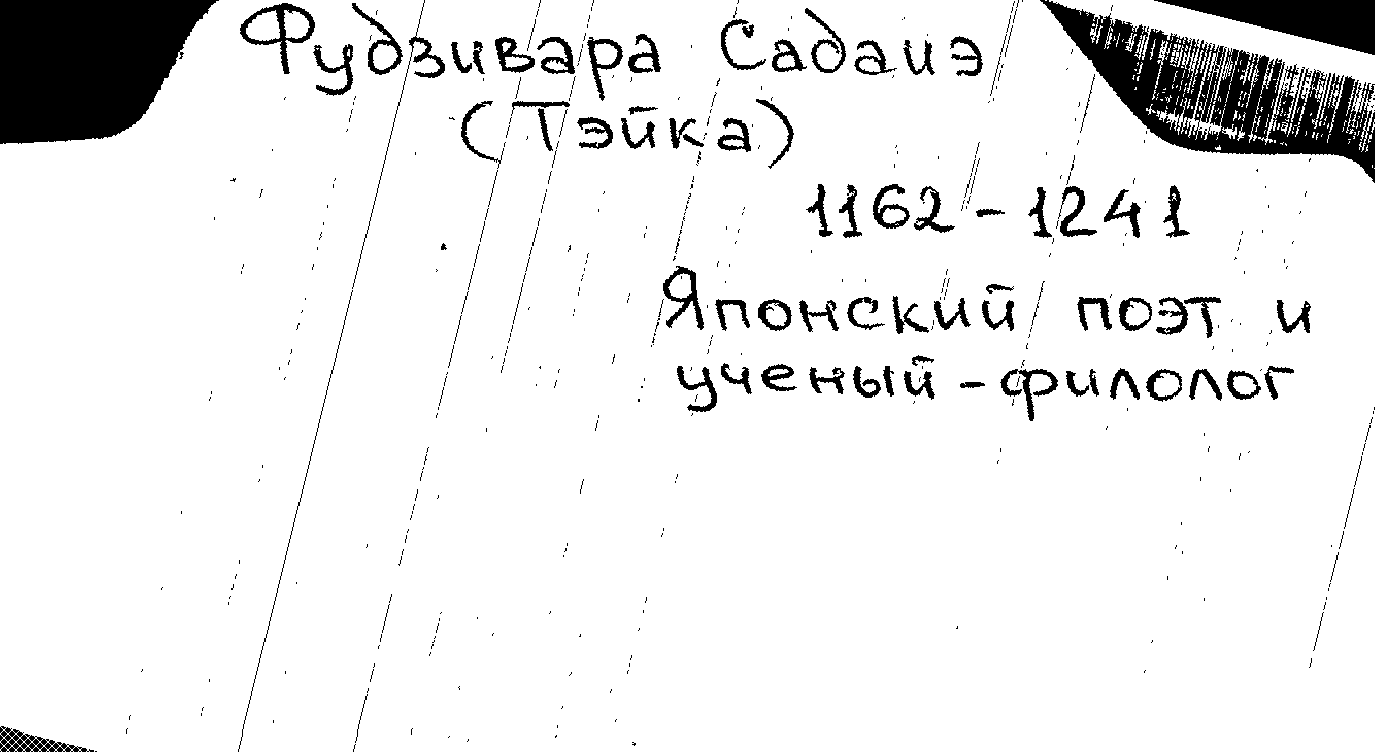 Фудзивара Садаиэ
(Тэйка)
1162 - 1241
Японский поэт и
ученый - филолог